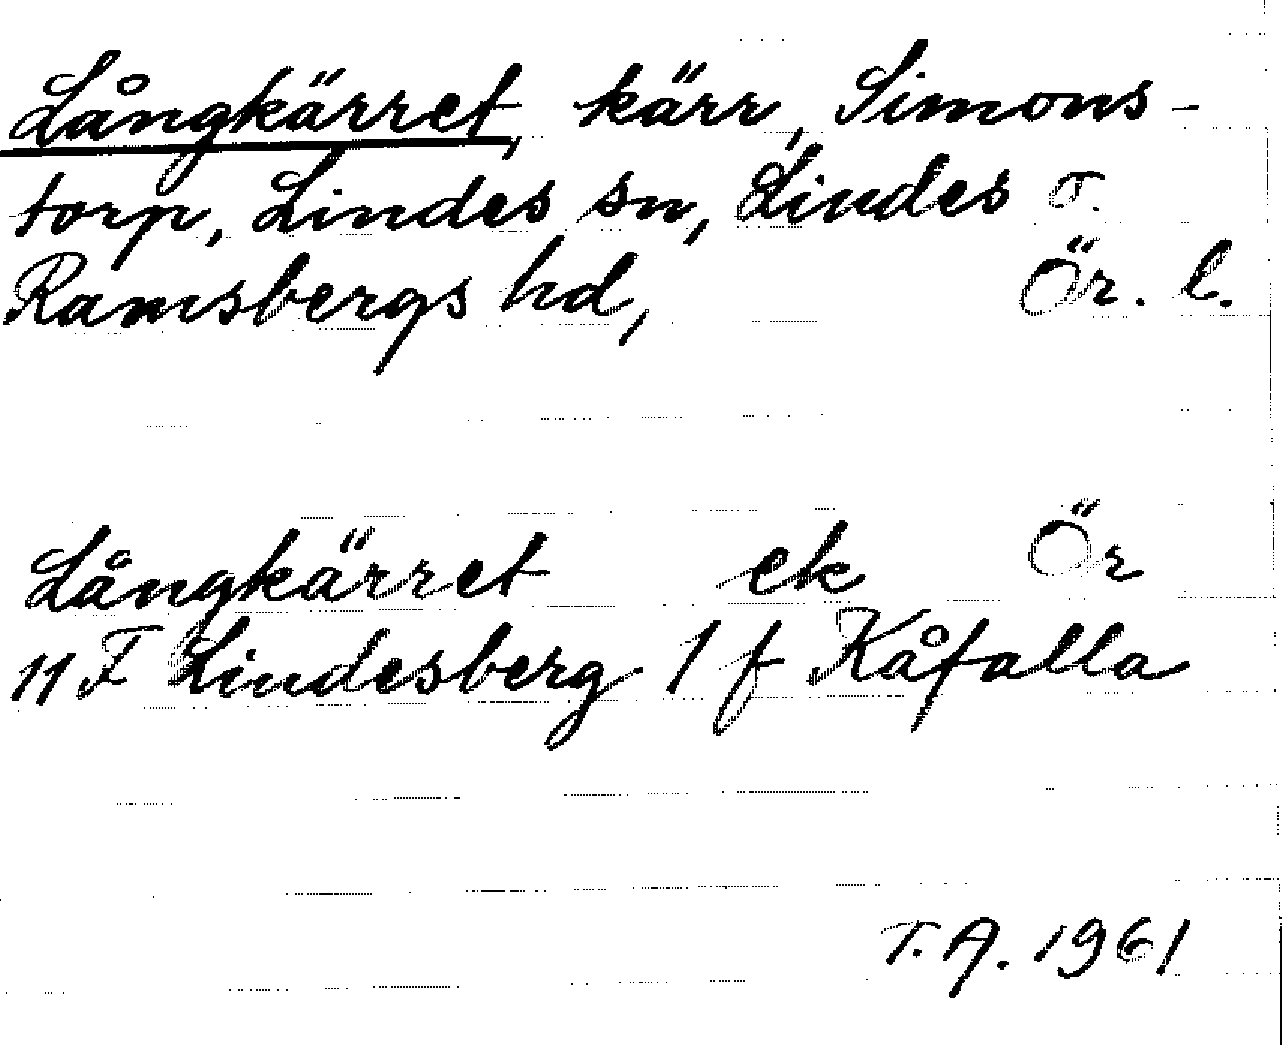 Långkärret, kärr, Simons-
torp, Lindes sn, Lindes o.
Ramsbergs hd, Ör. l.
Långkärret ek Ör
11 F Lindesberg 1 f Kåfalla
T.A. 1961